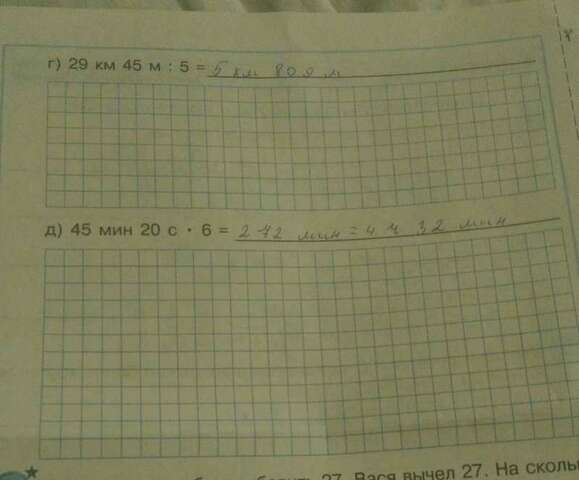 г) 29 км 45 м : 5 = 5 км 809 м
д) 45 мин 20 с · 6 = 272 мин = 4 ч 32 мин
27. Вася вычел 27. На сколь